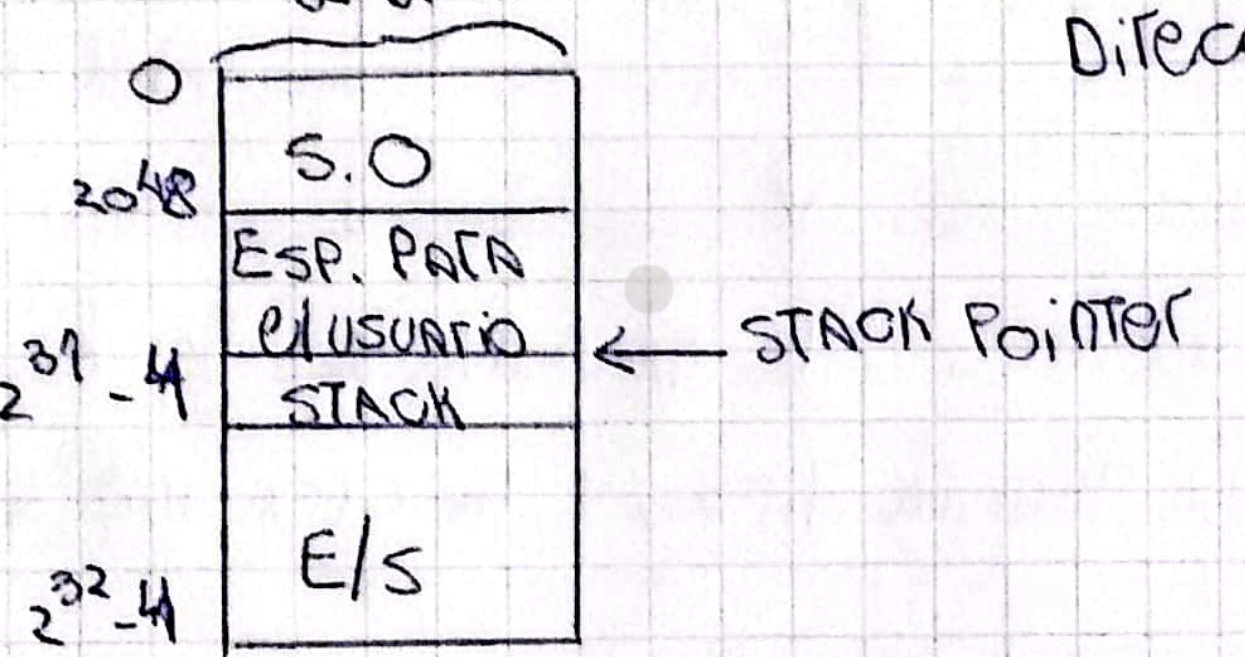 Direc
0
S.O
2048
ESP. PARA
el USUARIO
2³¹ - 4
STACK
← STACK POINTER
E/S
2³² - 4